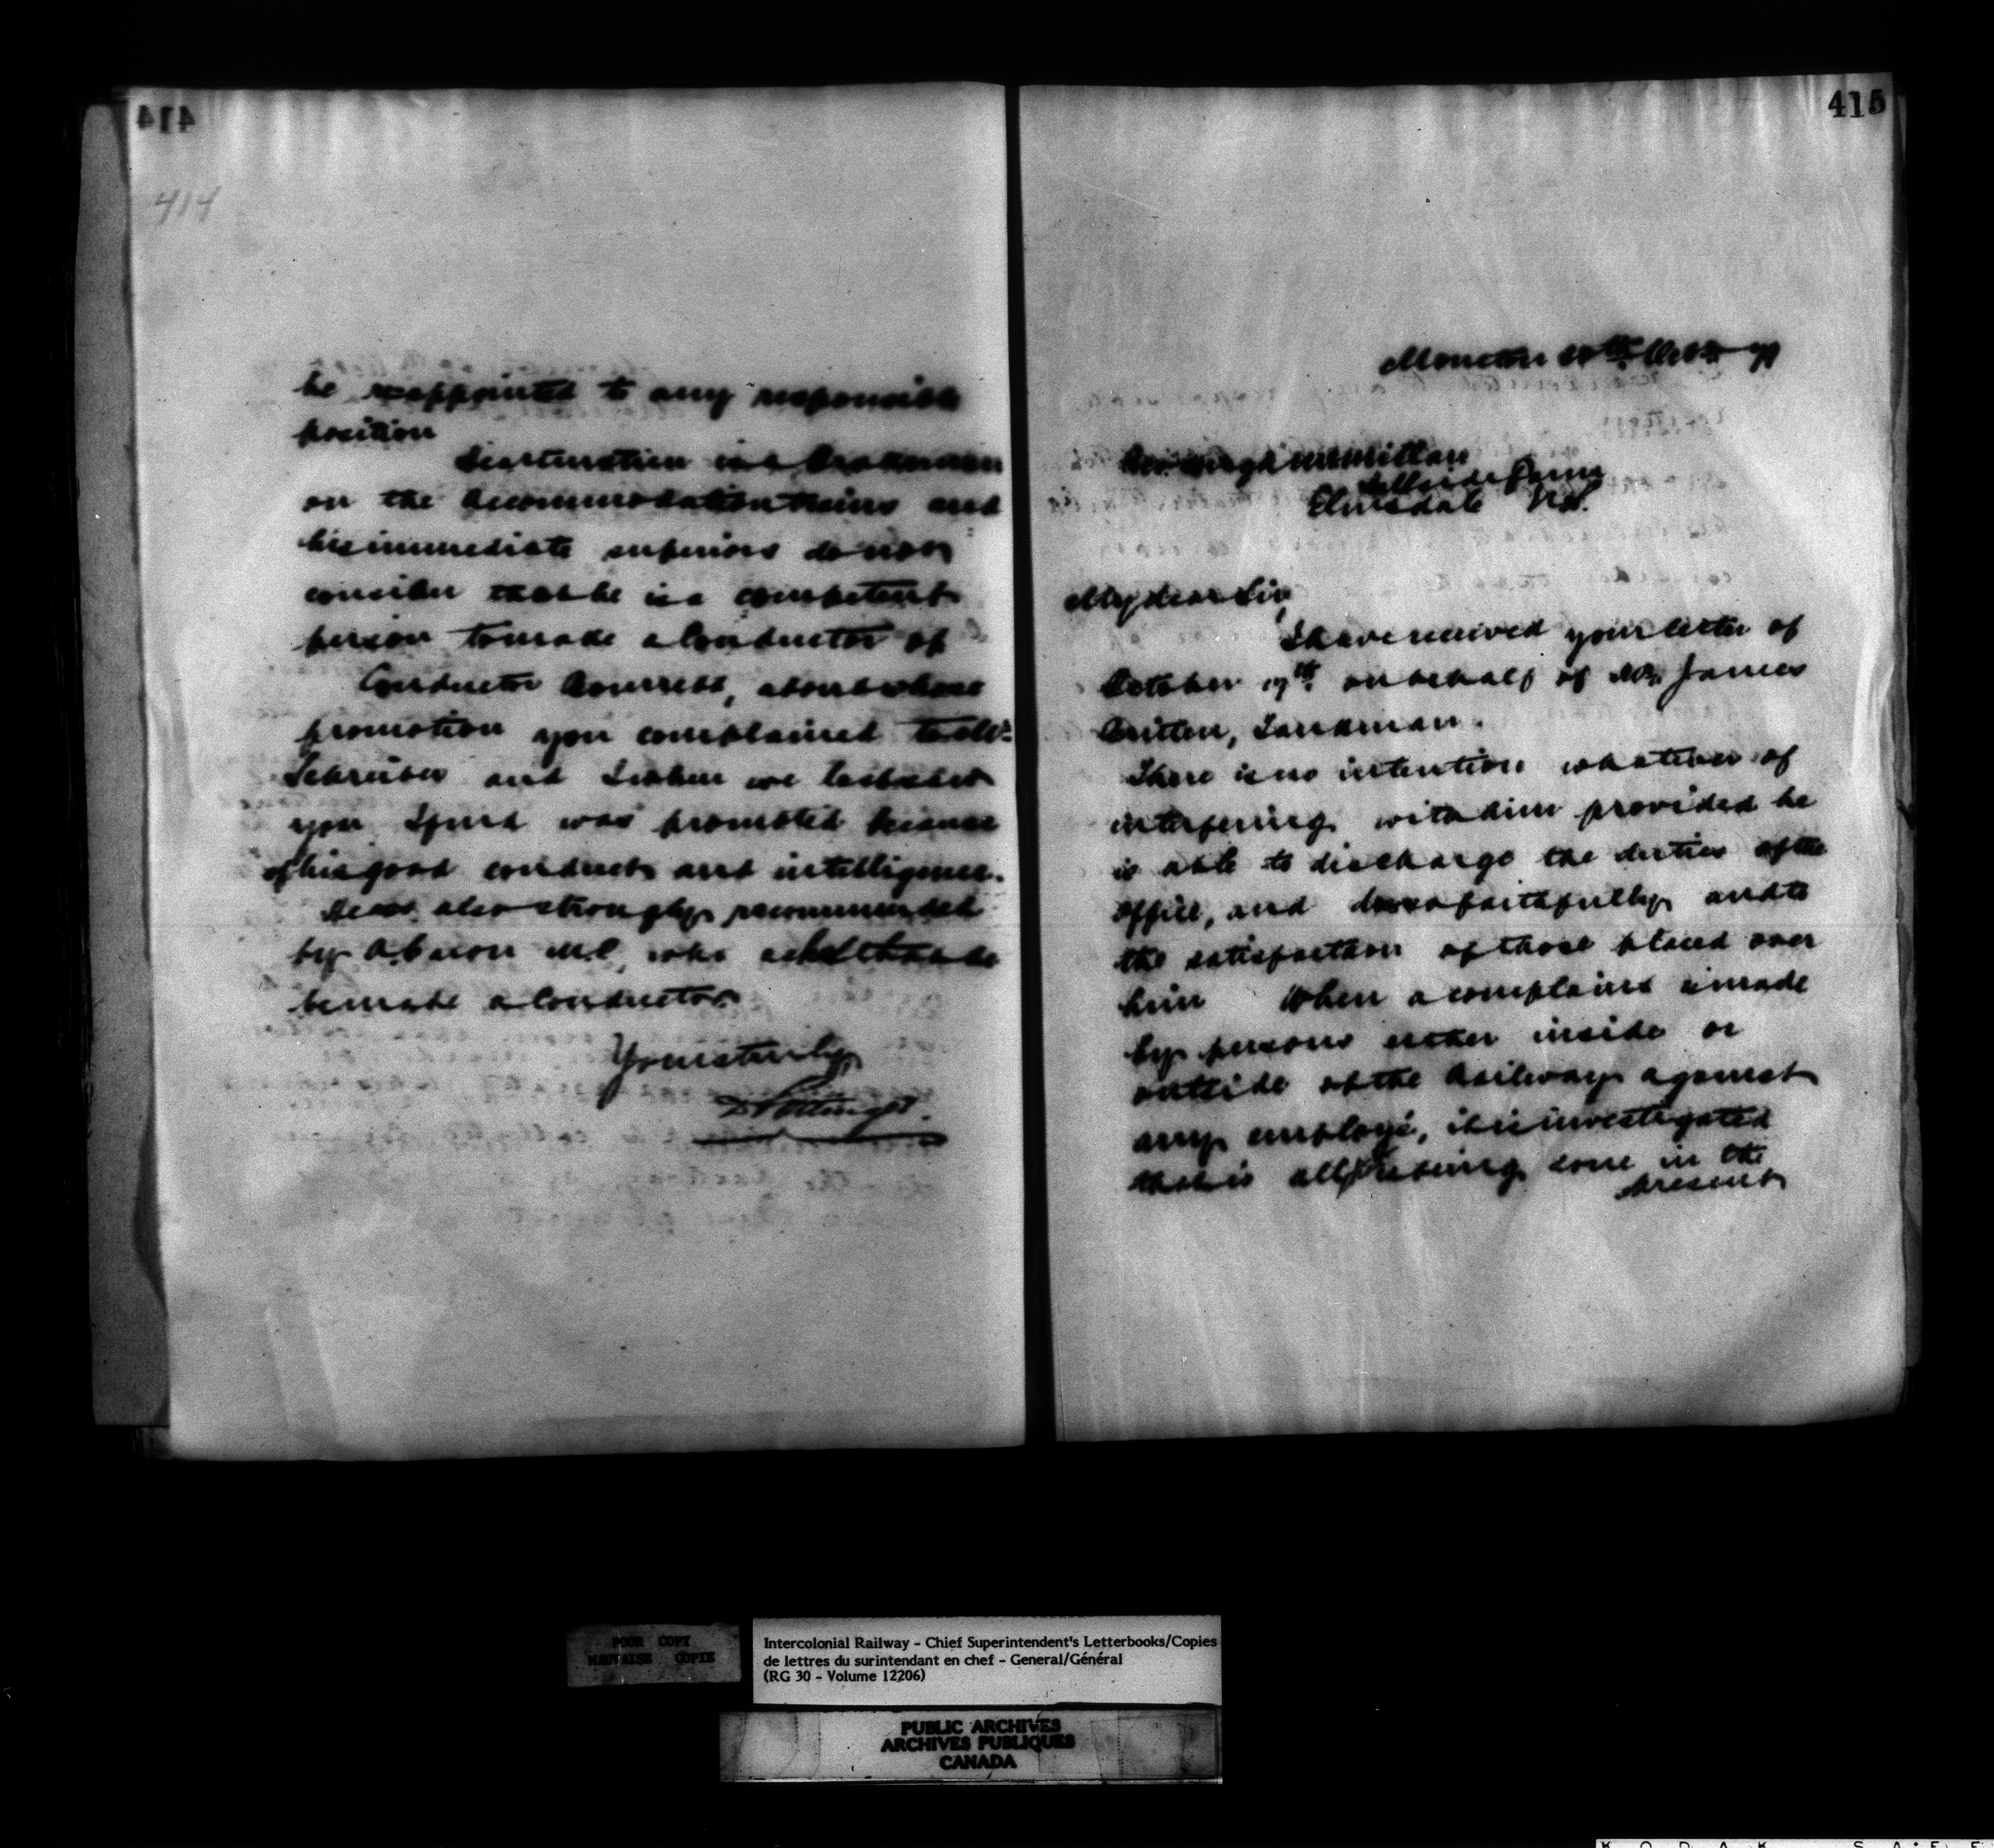 414
414
be reappointed to any responsible
position
is a Brakeman
on the Accommodation trains and
his immediate superiors do not
consider that he is a competent
person to made a Conductor of
Conductor, about whose
promotion you complained to Mr.
Schreiber and
you I find was promoted because
of his good conduct and intelligence.
He was also strongly recommended
by A. Caron M.P. who asked that he
be made a Conductor.
Yours truly
D Pottinger
415
Moncton 20th Octr
Rev. Hugh McMillan
Elmsdale N.S.
My dear Sir,
I have received your letter of
October 17th on behalf of Mr. James
Tankman.
There is no intention whatever of
interfering with him provided he
is able to discharge the duties of the
office, and does so faithfully and to
the satisfaction of those placed over
him When a complaint is made
by persons either inside or
outside of the Railway against
any employé, it is investigated
that is all that is being done in the
present
POOR COPY
MAUVAISE COPIE
Intercolonial Railway - Chief Superintendent's Letterbooks/Copies
de lettres du surintendant en chef - General/Général
(RG 30 - Volume 12206)
PUBLIC ARCHIVES
ARCHIVES PUBLIQUES
CANADA